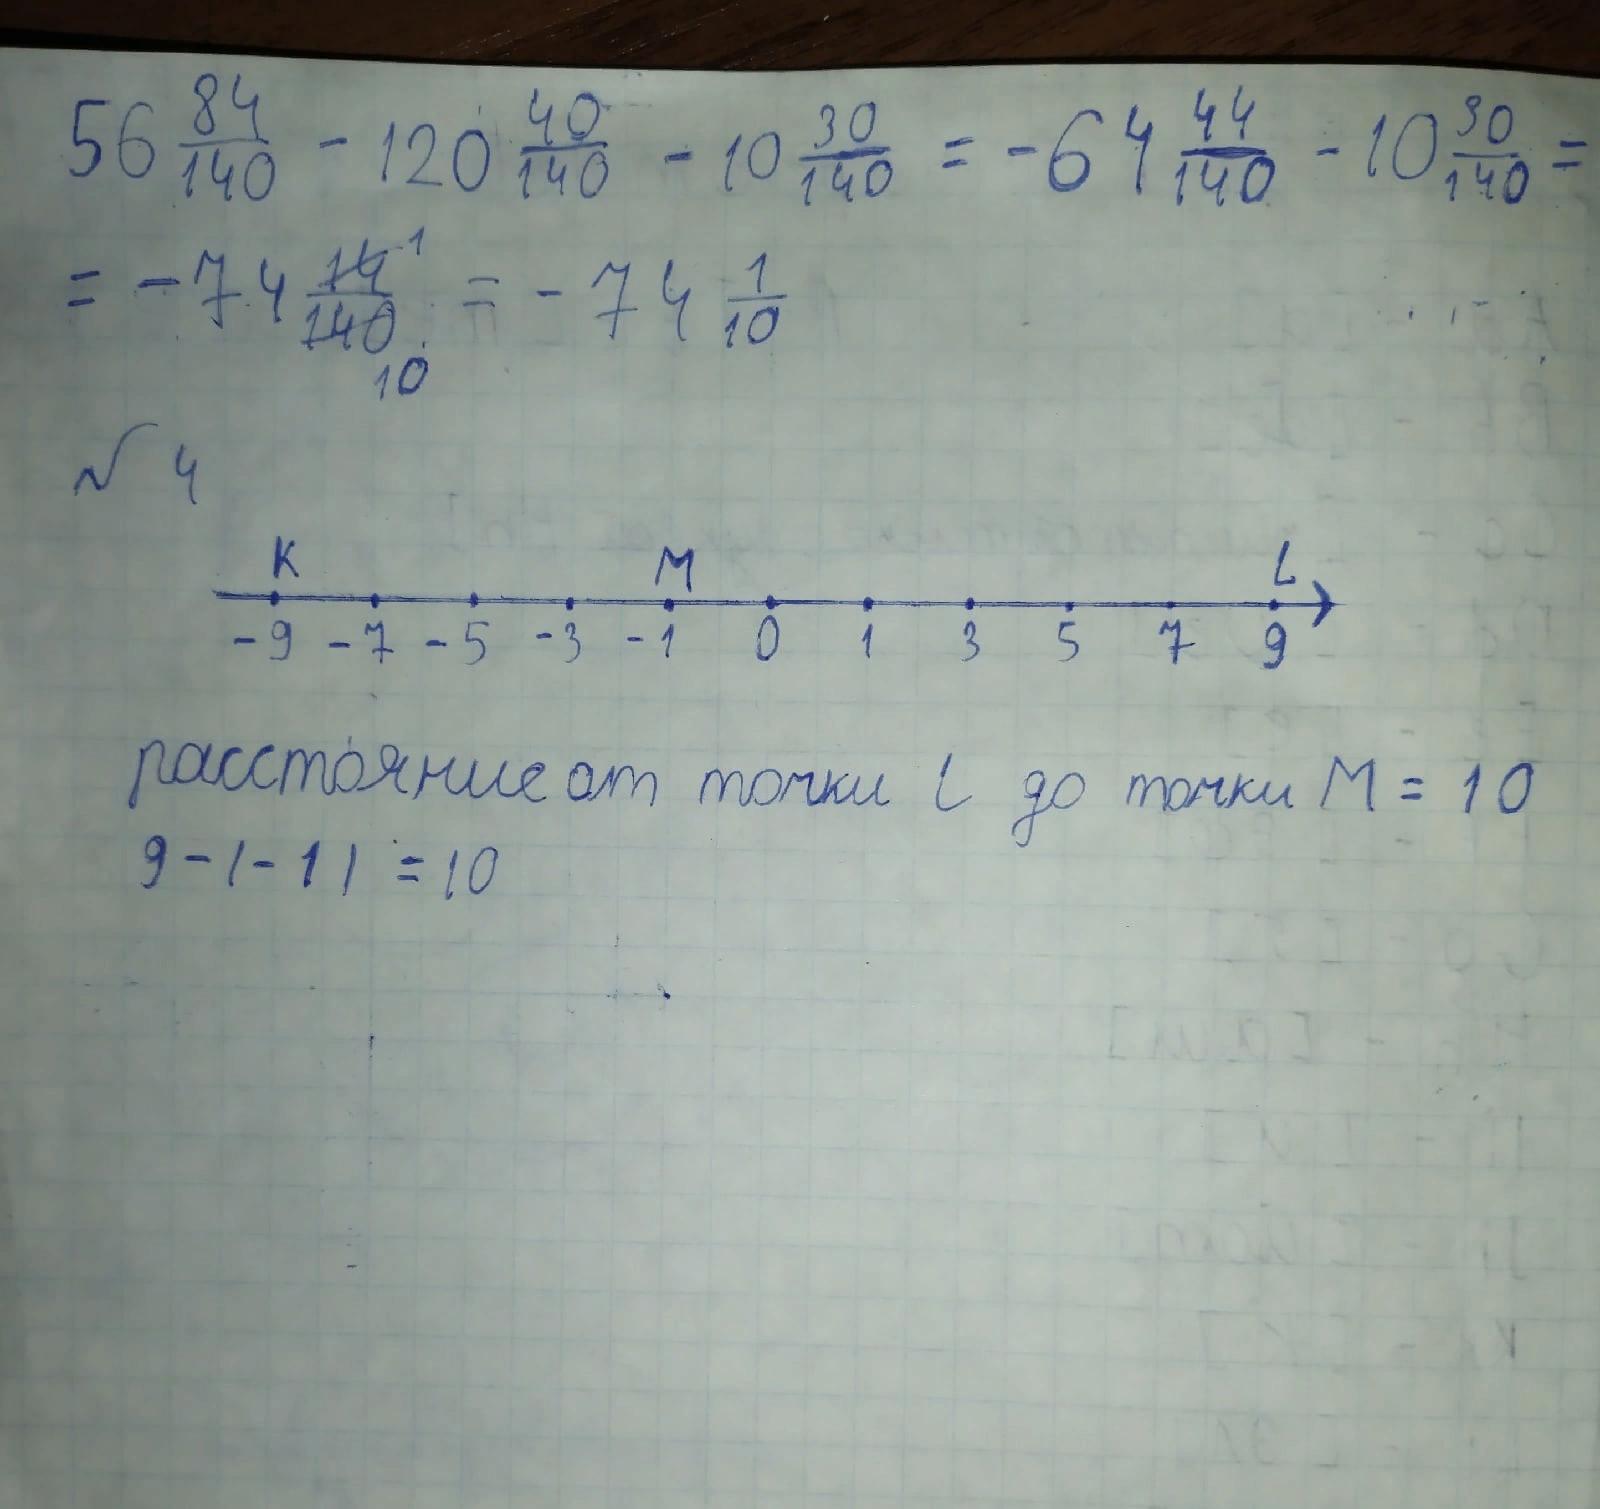 56 84/140 - 120 40/140 - 10 30/140 = -64 44/140 - 10 30/140 =
= -74 14/140 1 10 = -74 1/10
№ 4
K M L
-9 -7 -5 -3 -1 0 1 3 5 7 9
расстояние от точки L до точки M = 10
9-|-1| = 10